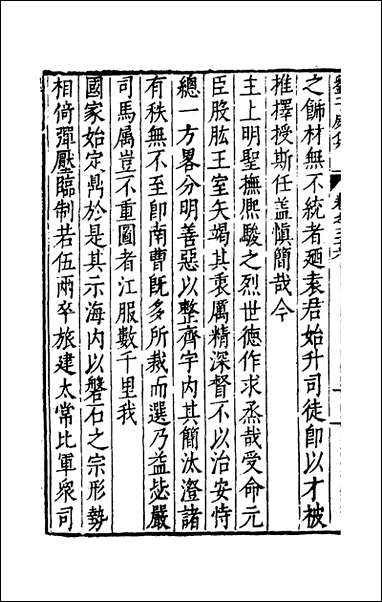 之飭材無不統者廼袁君始升司徒卽以才被
推擇授斯任盖慎簡哉今
主上明聖撫熈駿之烈世德作求烝哉受命元
臣股肱王室矢竭其衷厲精深督不以治安恃
總一方畧分明善惡以整齊宇内其簡汰澄諸
有秩無不至卽南曹旣多所裁而選乃益毖嚴
司馬属豈不重圖者江服數千里我
國家始定鼎於是其示海内以磐石之宗形勢
相倚彈壓臨制若伍兩卒旅建太常比軍衆司